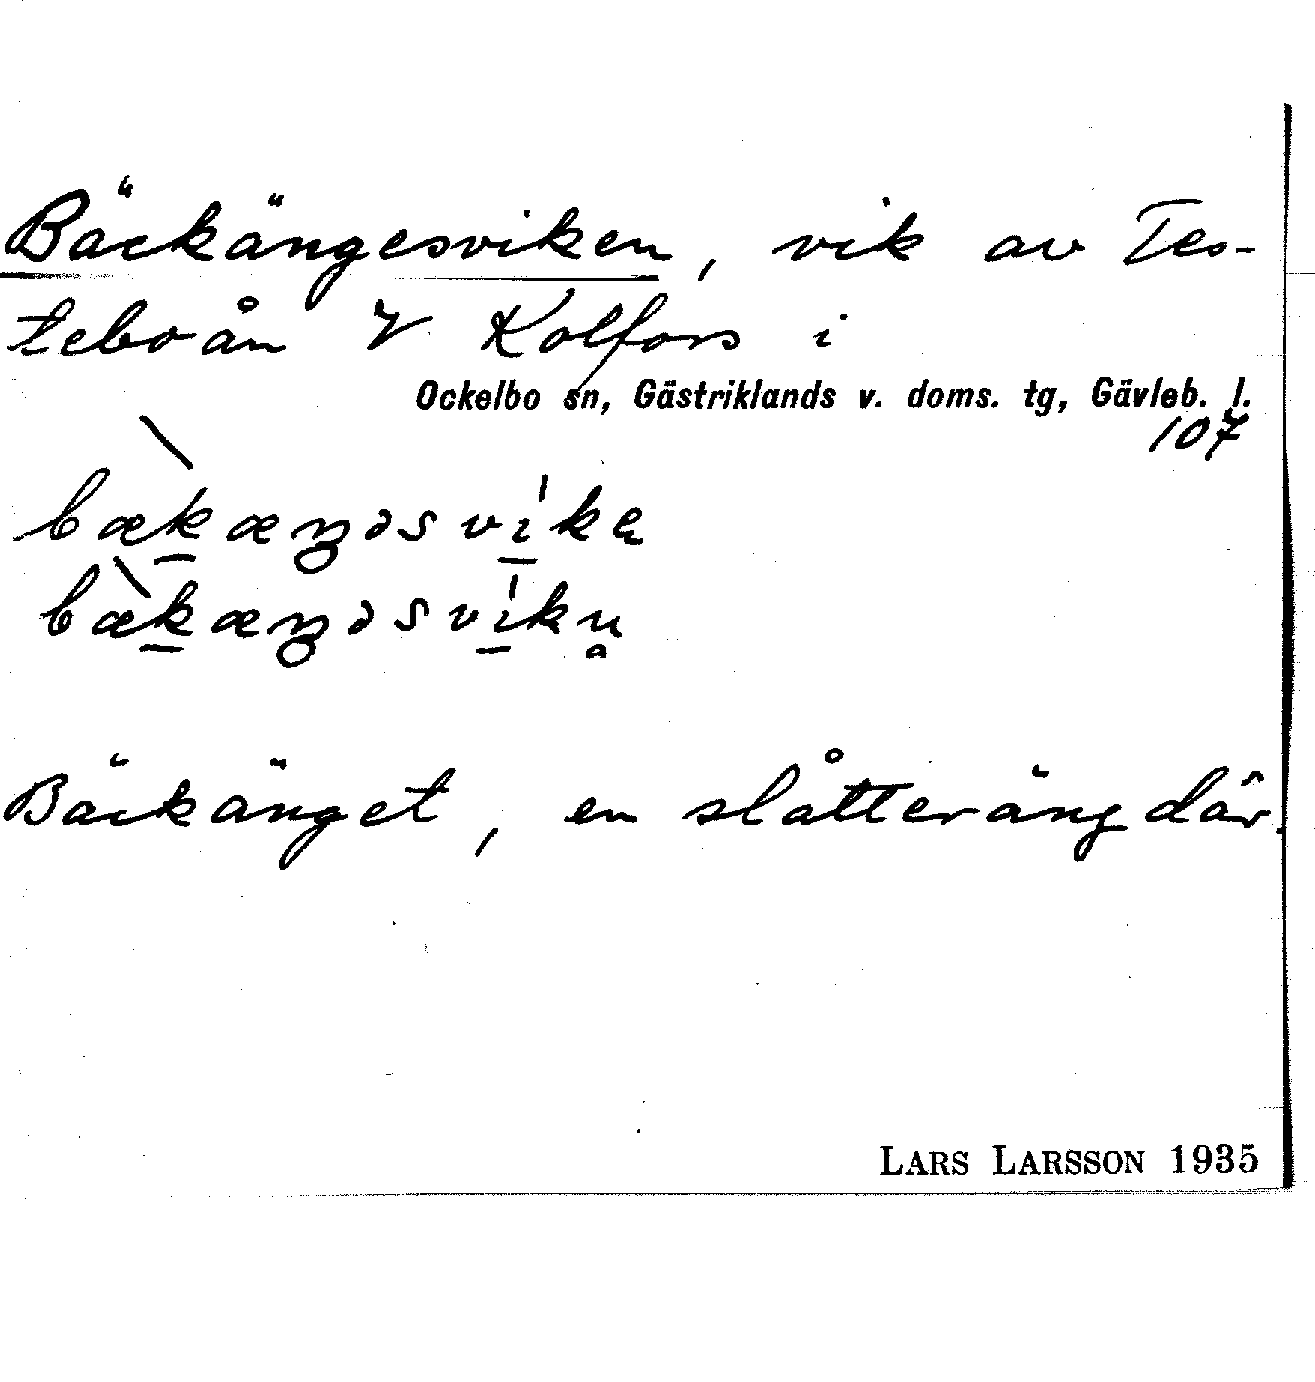 Bäckängesviken, vik av Tes-
teboån V Kolfors i
Ockelbo sn, Gästriklands v. doms. tg, Gävleb. l.
107
bæ̀k̲æŋəsvi̲̍ką
bæ̀k̲æŋəsvi̲̍kn̥
Bäckänget, en slåtteräng där.
LARS LARSSON 1935